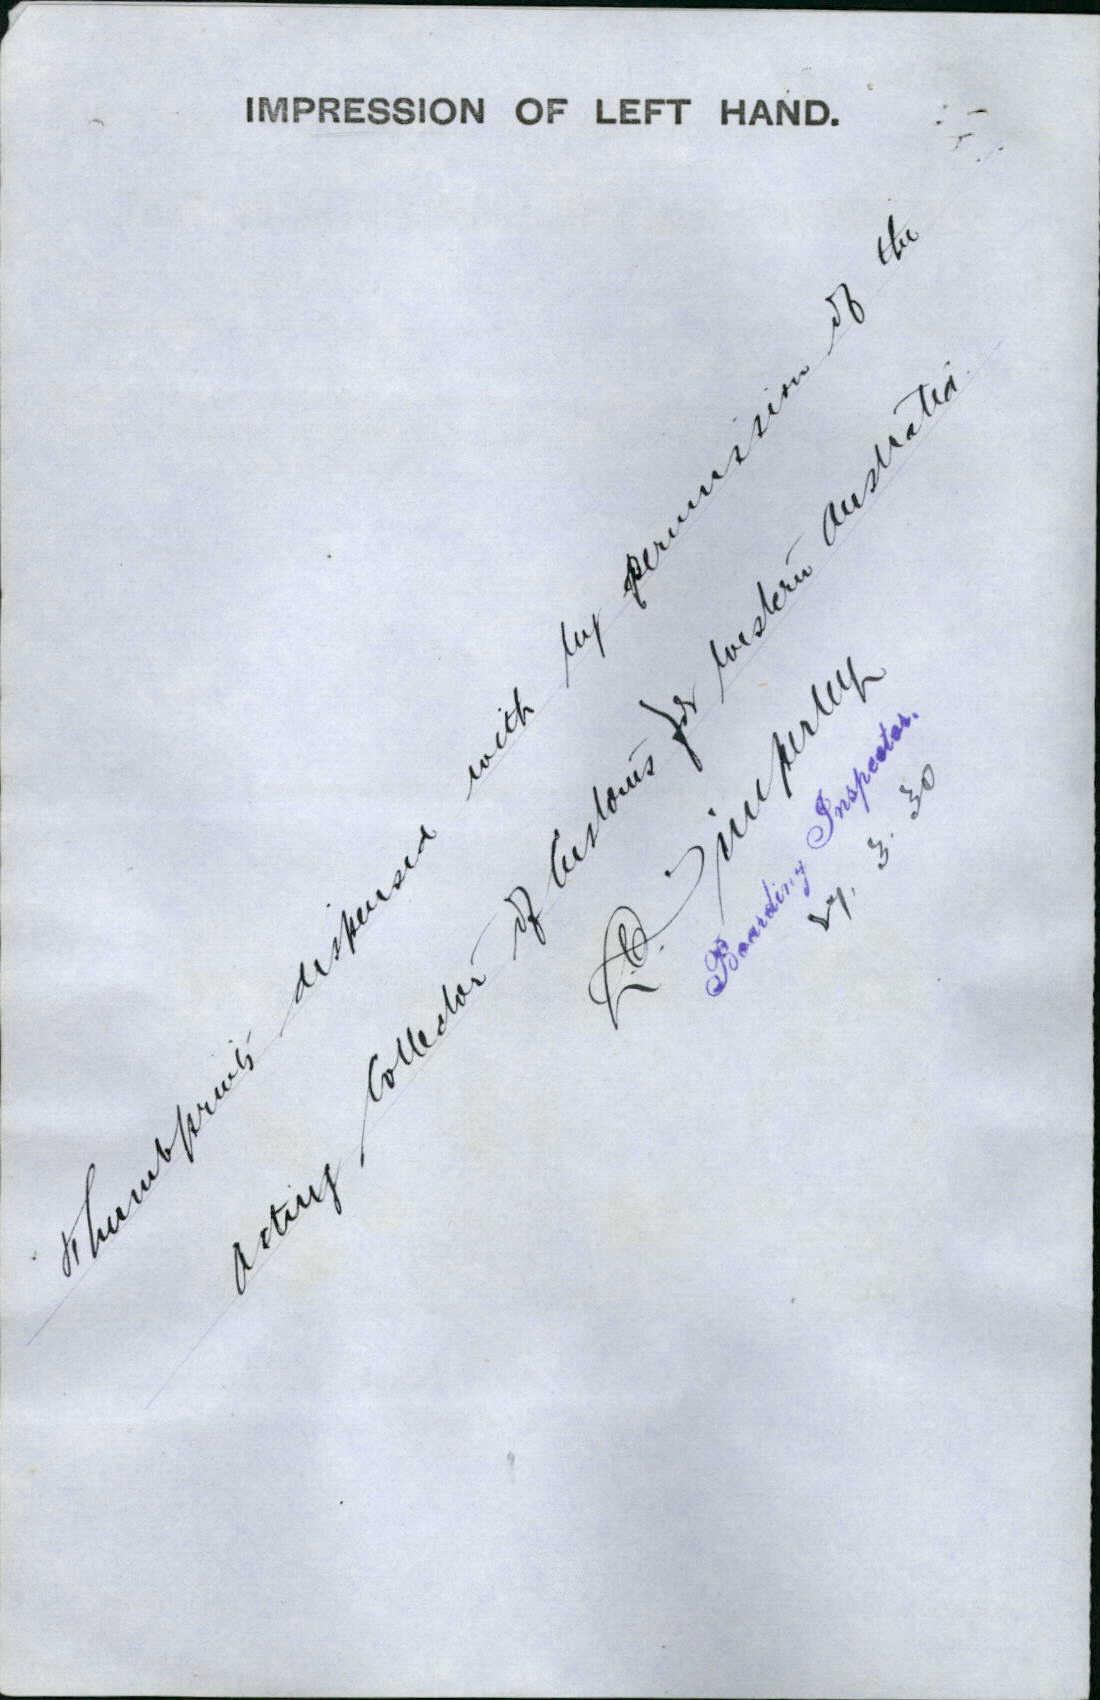 IMPRESSION OF LEFT HAND.
Thumbprints dispensed with by permission of the
Acting Collector of Customs for Western Australia.
Timperley
Boarding Inspector.
27. 3. 30